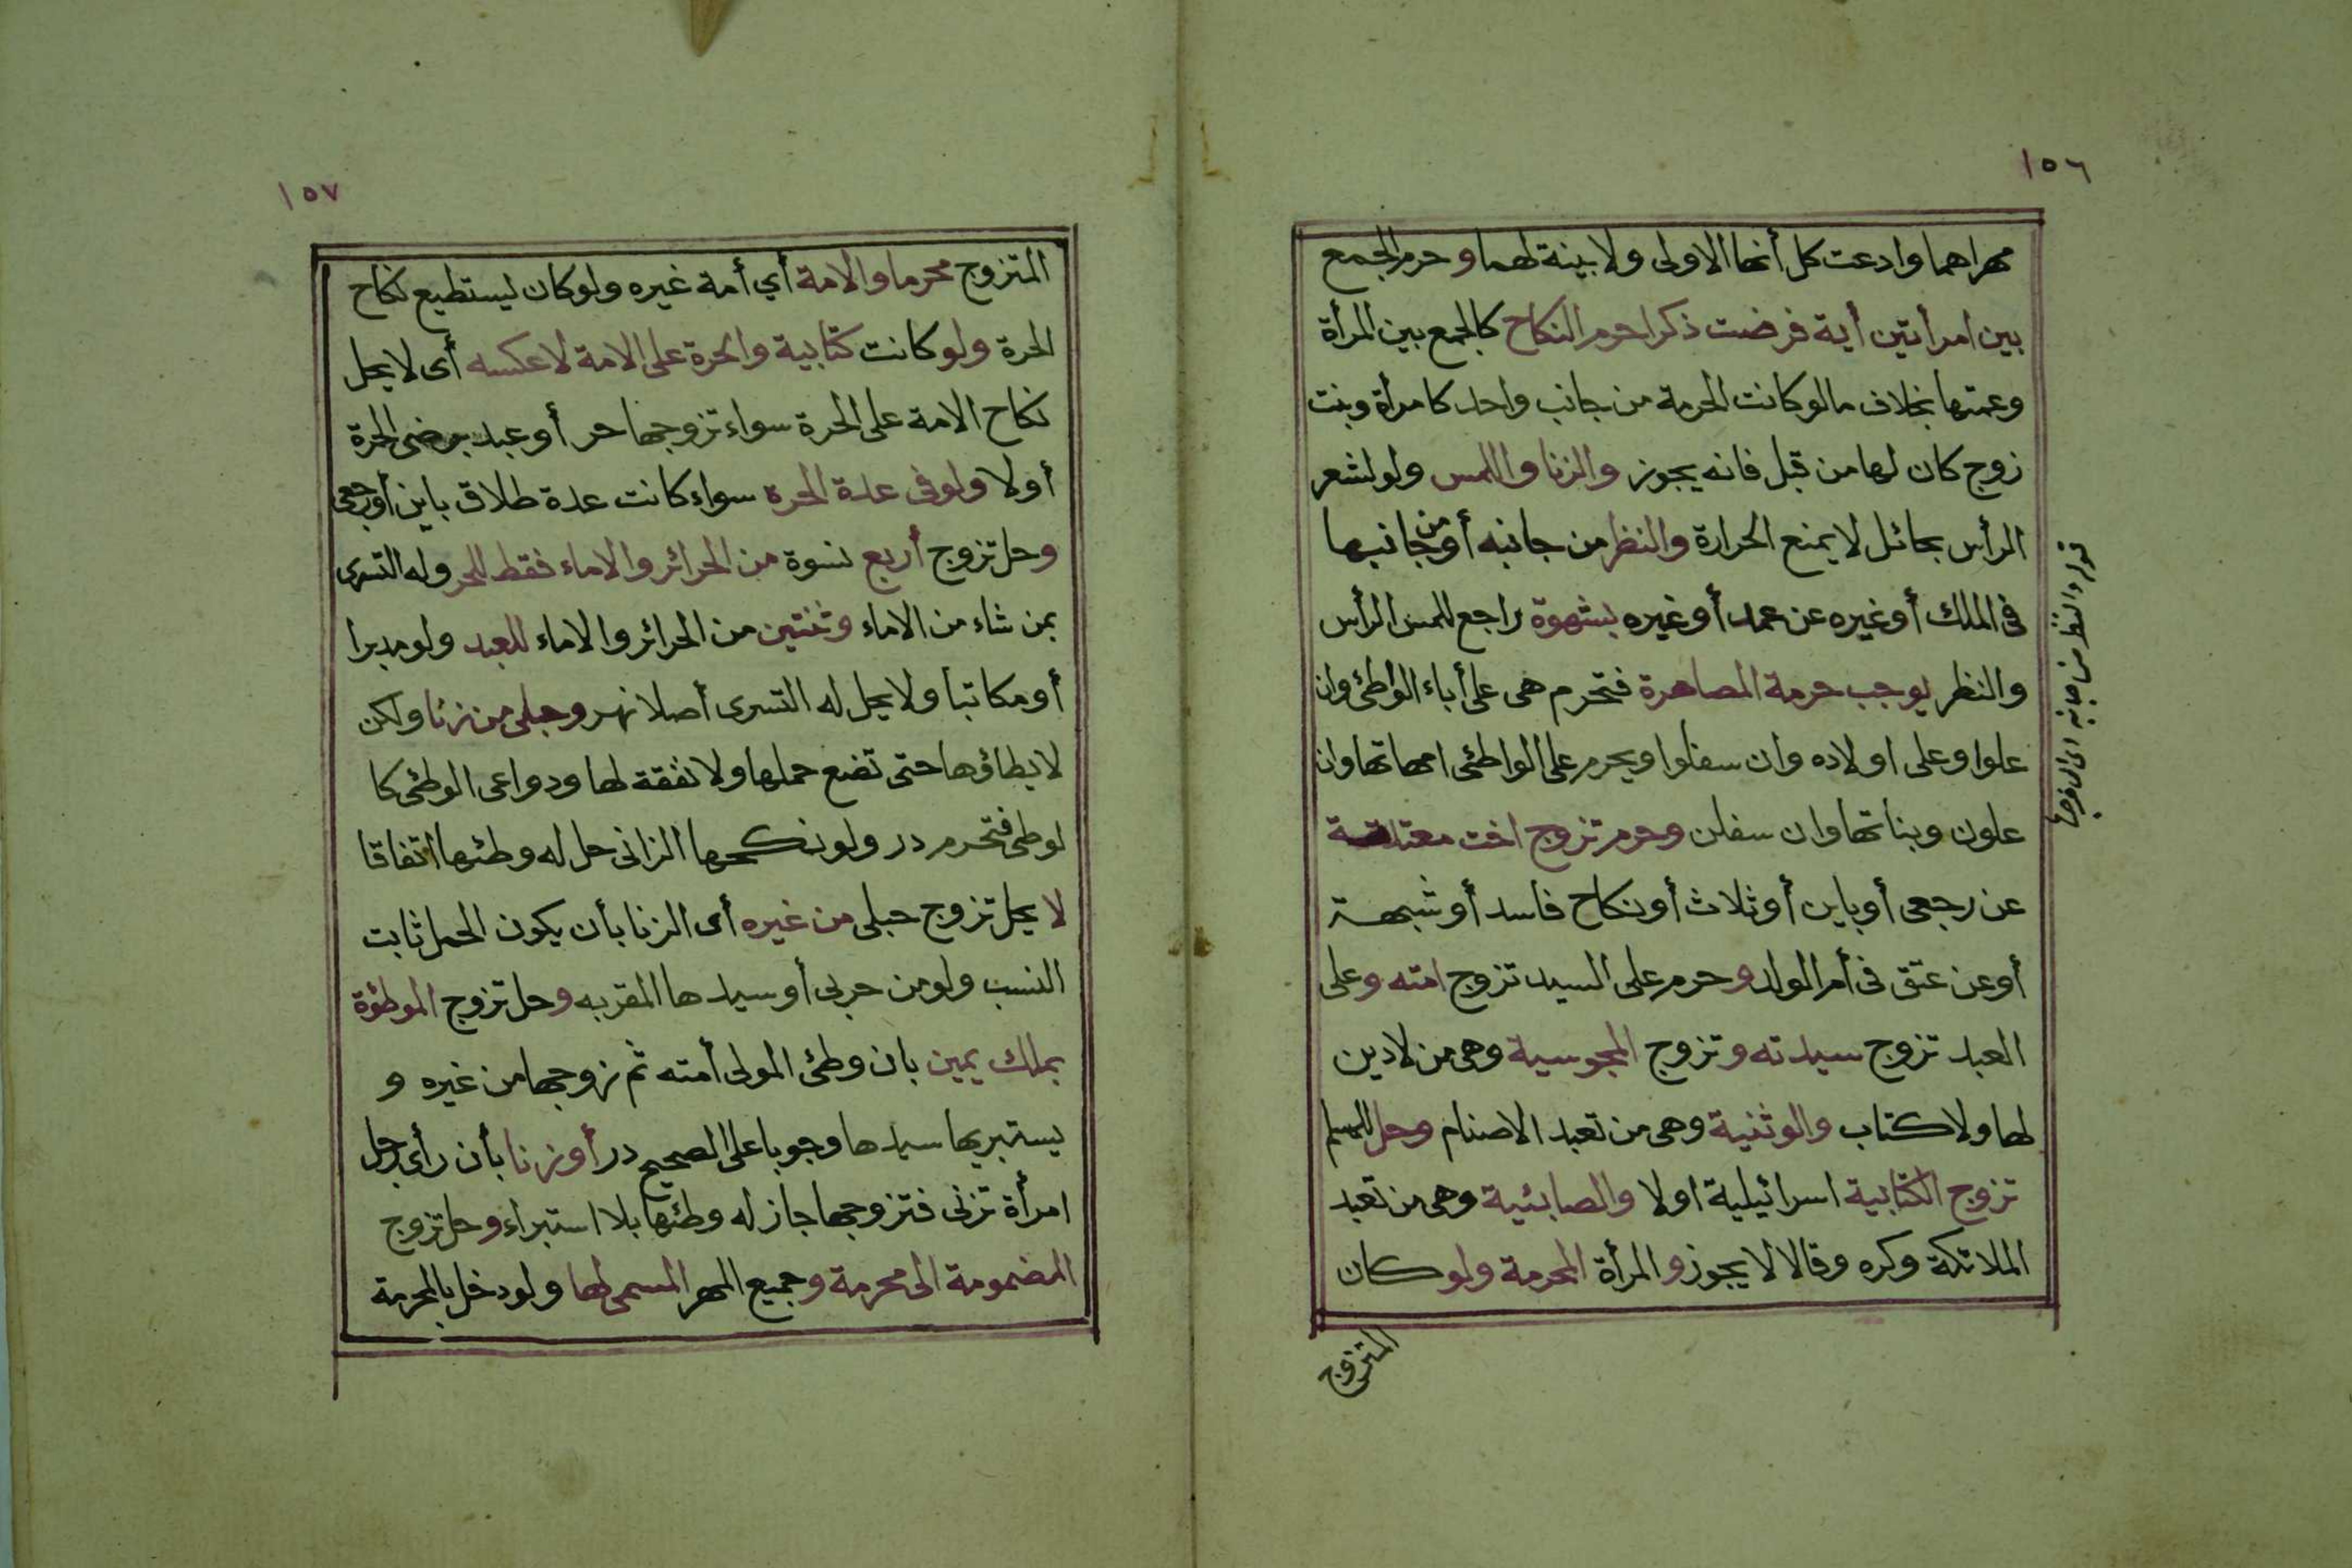 ١٥٦
مهراهما وادعت كل أنها الاولى ولا بينة لهما وحرم الجمع
بين امرأتين أية فرضت ذكرا حرم النكاح كالجمع بين المرأة
وعمتها بخلاف مالو كانت الحرمة من جانب واحد كامرأة وبنت
زوج كان لها من قبل فانه يجوز والزنا واللمس ولو لشعر
الرأس بحائل لا يمنع الحرارة والنظر من جانبه أو من جانبها
فى الملك أو غيره عن عمد أو غيره بشهوة راجع للمس الرأس
والنظر يوجب حرمة المصاهرة فتحرم هى على أباء الواطئ وان
علوا وعلى اولاده وان سفلوا ويحرم على الواطئى امهاتها وان
علون وبناتها وان سفلن وحرم تزوج اخت معتدته
عن رجعى أو باين أو ثلاث أو نكاح فاسد أو شبهة
أو عن عتق فى أم الولد وحرم على السيد تزوج امته وعلى
العبد تزوج سيدته وتزوج المجوسية وهى من لادين
لها ولا كتاب والوثنية وهى من تعبد الاصنام وحل للمسلم
تزوج الكتابية اسرائيلية اولا والصابئية وهى من تعبد
الملائكة وكره وقالا لا يجوز والمرأة المحرمة ولو كان
المتزوج
قوله والنظر من جانبه اى الى فرجها
١٥٧
المتزوج محرما والامة أي أمة غيره ولو كان ليستطيع نكاح
الحرة ولو كانت كتابية والحرة على الامة لا عكسه أى لا يحل
نكاح الامة على الحرة سواء تزوجها حر أو عبد برضى الحرة
أولا ولو فى عدة الحرة سواء كانت عدة طلاق باين أو رجعى
وحل تزوج أربع نسوة من الحرائر والاماء فقط للحر وله التسرى
بمن شاء من الاماء وثنتين من الحرائر والاماء للعبد ولو مدبرا
أو مكاتبا ولا يحل له التسرى أصلا نهر وحبلى من زنا ولكن
لا يطاؤها حتى تضع حملها ولا نفقة لها ودواعى الوطئ كا
لوطئ فتحرم در ولو نكحها الزانى حل له وطئها اتفاقا
لا يحل تزوج حبلى من غيره أى الزنا بأن يكون الحمل ثابت
النسب ولو من حربى أو سيدها المقر به وحل تزوج الموطؤة
بملك يمين بان وطئى المولى أمته ثم زوجها من غيره و
يستبريها سيدها وجوبا على الصحيح در أو زنا بأن رأى رجل
امرأة تزنى فتزوجها جاز له وطئها بلا استبراء وحل تزوج
المضمومة الى محرمة وجميع المهر المسمى لها ولو دخل بالمحرمة